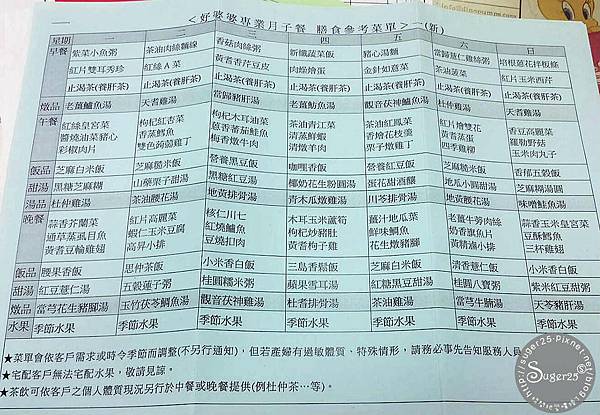 <好婆婆專業月子餐 膳食參考菜單>一(新)
星期 一 二 三 四 五 六 日
早餐 紫菜小魚粥 茶油肉絲麵線 香菇肉絲粥 新纖蔬菜飯 豬心湯麵 當歸薏仁雞絲粥 培根蔥花拌板條
紅片雙耳秀珍 紅絲A菜 黃耆香芹豆皮 肉燥燴蛋 金針如意菜 茶油菠菜 紅片玉米西芹
止渴茶(養肝茶) 止渴茶(養肝茶) 止渴茶(養肝茶) 止渴茶(養肝茶) 止渴茶(養肝茶) 止渴茶(養肝茶) 止渴茶(養肝茶)
燉品 老薑鱸魚湯 天耆雞湯 當歸豬肝湯 老薑魴魚湯 觀音茯神鱸魚湯 杜仲雞湯 天耆豬肝湯
午餐 紅絲皇宮菜 枸杞紅杏菜 枸杞木耳油菜 茶油青江菜 茶油紅鳳菜 紅片燴雙花 香豆高麗菜
醬燒油菜豬心 香蒸鱈魚 蔥香蕃茄鮭魚 清蒸鮮蝦 香燴花枝羹 黃耆蒸蛋 羅勒野菇
彩椒肉片 雙色蒟蒻雞丁 梅香燉牛肉 清燉羊肉 栗子燉雞丁 四季雞柳 玉米肉丸子
飯品 芝麻白米飯 芝麻糙米飯 營養黑豆飯 咖哩香飯 營養紅豆飯 芝麻糙米飯 香郁五穀飯
甜湯 黑糖芝麻糊 山藥栗子甜湯 黑糖紅豆湯 椰奶花生粉圓湯 蛋花甜酒釀 地瓜小圓甜湯 芝麻糊湯圓
湯品 杜仲雞湯 茶油腰花湯 地黃排骨湯 青木瓜燉雞湯 川芎排骨湯 地黃腰花湯 味噌鮭魚湯
晚餐 蒜香芥蘭菜 紅片高麗菜 核仁川七 木耳玉米蘆筍 薑汁地瓜葉 老薑牛蒡肉絲 蒜香玉米皇宮菜
通草蒸虱目魚 蝦仁玉米豆腐 紅燒鱸魚 枸杞炒豬肚 鮮味鯛魚 奶香旗魚片 豆酥鱈魚
黃耆豆輪雞翅 高昇小排 豆燒扣肉 黃耆枸子雞 花生燉豬腳 黃精滷小排 三杯雞翅
飯品 腰果香飯 思仲茶飯 小米香白飯 三島香鬆飯 芝麻白米飯 清香薏仁飯 小米香白飯
甜湯 紅豆薏仁湯 五穀蓮子粥 桂圓糯米粥 蘋果雪耳湯 紅糖黑豆甜湯 桂圓八寶粥 紫米紅豆甜粥
燉品 當芎花生豬腳湯 玉竹茯苓鯛魚湯 觀音茯神雞湯 杜耆排骨湯 茶油雞湯 當芎牛腩湯 天芩豬肝湯
水果 季節水果 季節水果 季節水果 季節水果 季節水果 季節水果 季節水果
★菜單會依客戶需求或時令季節而調整(不另行通知)，但若產婦有過敏體質、特殊情形，請務必事先告知服務人員
★宅配客戶無法宅配水果，敬請見諒。
★茶飲可依客戶之個人體質現況另行於中餐或晚餐提供(例杜仲茶…等)。
Suger25